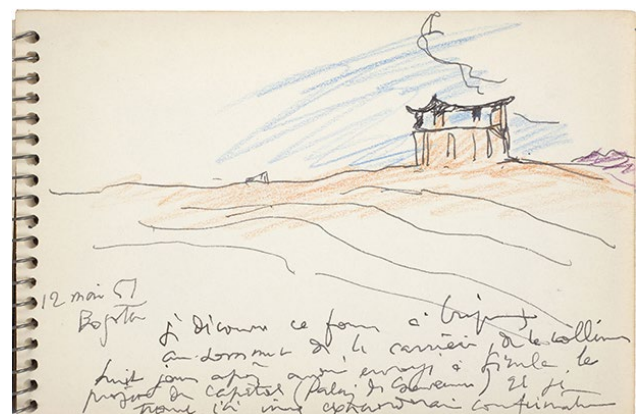 12 mai 51
Bogota
je découvre ce four à briques
au sommet de la carrière, de la colline
huit jours après avoir envoyé à Simla le
projet du capitol (Palais du Gouverneur) Et je
une extraordinaire confirmation